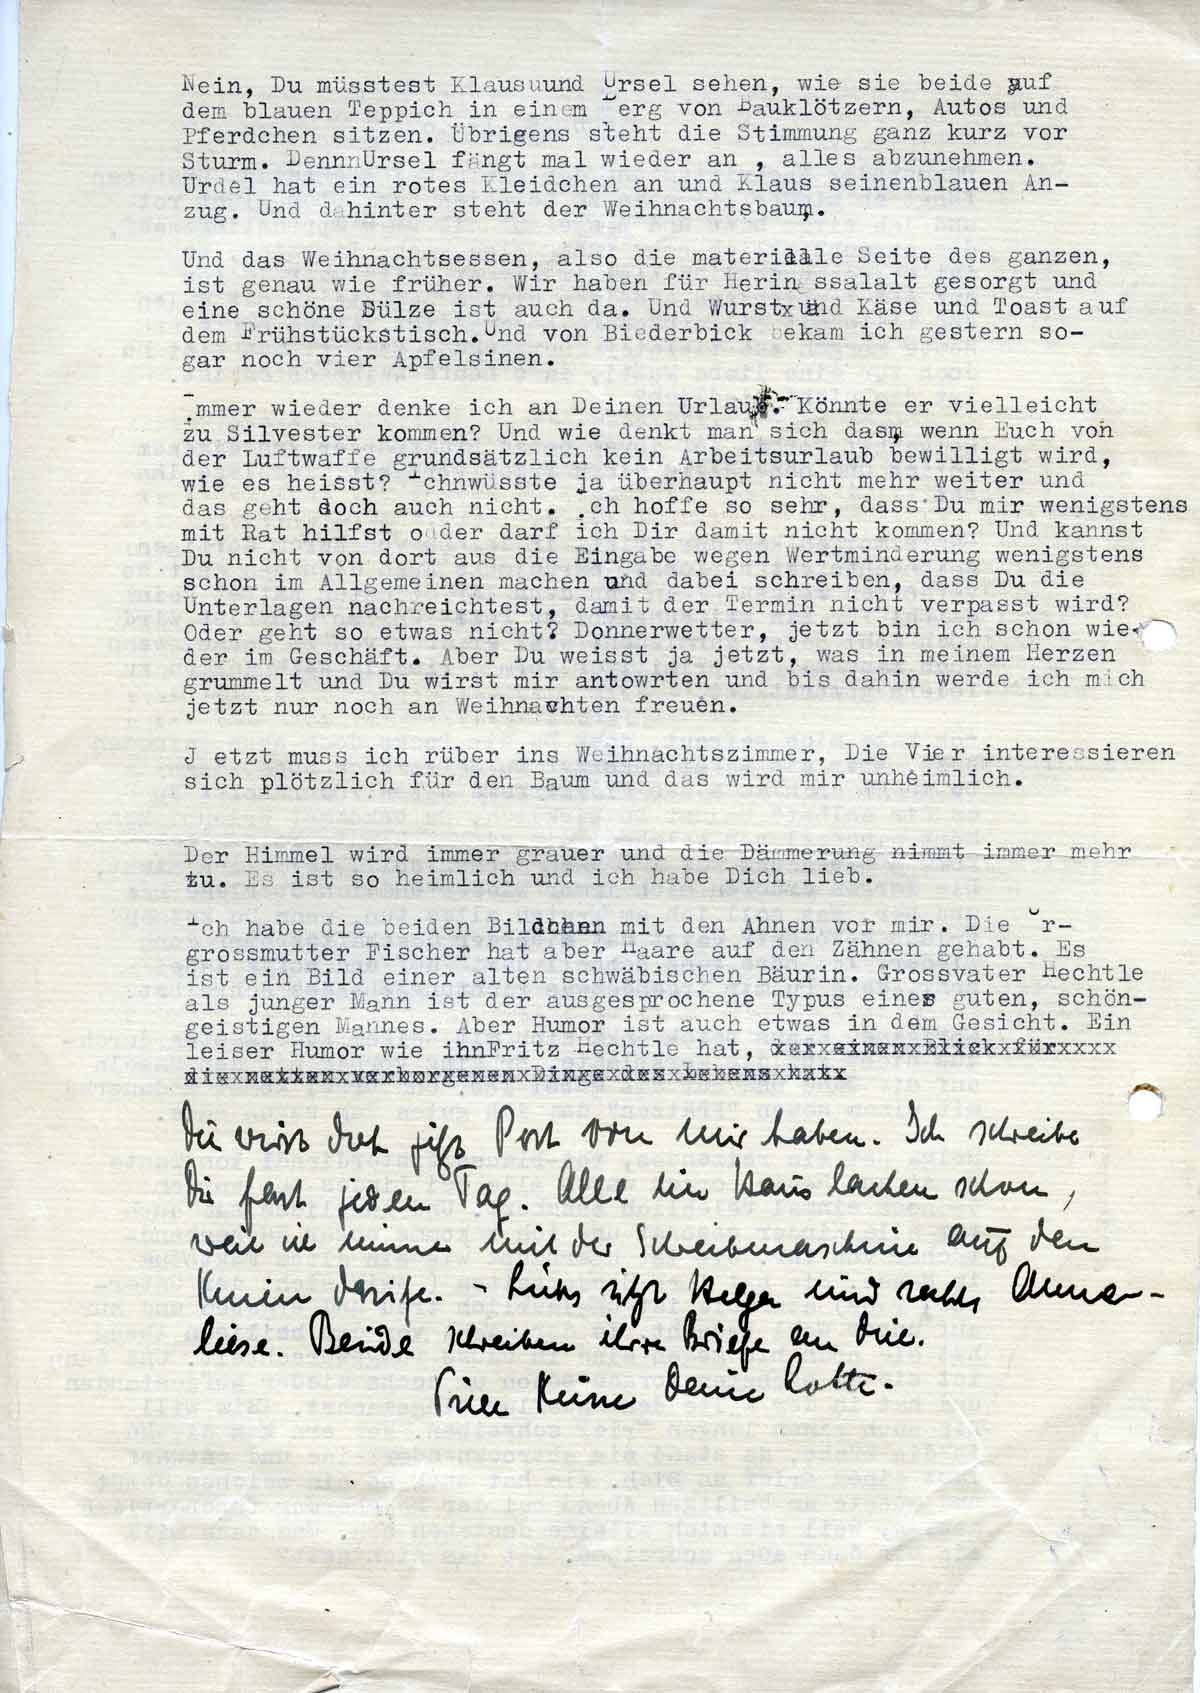 Nein, Du müsstest Klausuund Ursel sehen, wie sie beide auf
dem blauen Teppich in einem Berg von Bauklötzern, Autos und
Pferdchen sitzen. Übrigens steht die Stimmung ganz kurz vor
Sturm. DennnUrsel fängt mal wieder an , alles abzunehmen.
Urdel hat ein rotes Kleidchen an und Klaus seinenblauen An-
zug. Und dahinter steht der Weihnachtsbaum.
Und das Weihnachtsessen, also die materielle Seite des ganzen,
ist genau wie früher. Wir haben für Herin ssalalt gesorgt und
eine schöne Sülze ist auch da. Und Wurst und Käse und Toast auf
dem Frühstückstisch.Und von Biederbick bekam ich gestern so-
gar noch vier Apfelsinen.
Immer wieder denke ich an Deinen Urlaub. Könnte er vielleicht
zu Silvester kommen? Und wie denkt man sich das, wenn Euch von
der Luftwaffe grundsätzlich kein Arbeitsurlaub bewilligt wird,
wie es heisst? Ichnwüsste ja überhaupt nicht mehr weiter und
das geht doch auch nicht. Ich hoffe so sehr, dass Du mir wenigstens
mit Rat hilfst oder darf ich Dir damit nicht kommen? Und kannst
Du nicht von dort aus die Eingabe wegen Wertminderung wenigstens
schon im Allgemeinen machen und dabei schreiben, dass Du die
Unterlagen nachreichtest, damit der Termin nicht verpasst wird?
Oder geht so etwas nicht? Donnerwetter, jetzt bin ich schon wie-
der im Geschäft. Aber Du weisst ja jetzt, was in meinem Herzen
grummelt und Du wirst mir antowrten und bis dahin werde ich mich
jetzt nur noch an Weihnachten freuen.
J etzt muss ich rüber ins Weihnachtszimmer, Die Vier interessieren
sich plötzlich für den Baum und das wird mir unheimlich.
Der Himmel wird immer grauer und die Dämmerung nimmt immer mehr
zu. Es ist so heimlich und ich habe Dich lieb.
Ich habe die beiden Bildchen mit den Ahnen vor mir. Die Ur-
grossmutter Fischer hat aber Haare auf den Zähnen gehabt. Es
ist ein Bild einer alten schwäbischen Bäurin. Grossvater Hechtle
als junger Mann ist der ausgesprochene Typus eines guten, schön-
geistigen Mannes. Aber Humor ist auch etwas in dem Gesicht. Ein
leiser Humor wie ihnFritz Hechtle hat, der einen Blick für
die netten verborgenen Dinge des Lebens hat
Du wirst doch jetzt Post von mir haben. Ich schreibe
Dir fast jeden Tag. Alle im Haus lachen schon,
weil ich immer mit der Schreibmaschine auf den
Knien sitze. - Links sitzt Helga und rechts Anne-
liese. Beide schreiben ihre Briefe an Dich.
Deine Lotte.